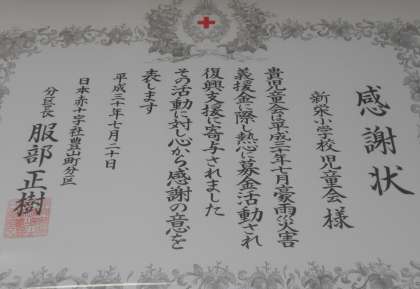 感謝状
新栄小学校 児童会 様
貴児童会は平成三十年七月豪雨災害
義援金に際し熱心に募金活動され
復興支援に寄与されました
その活動に対し心から感謝の意を
表します
平成三十年七月二十日
日本赤十字社豊山町分区
分区長 服部正樹